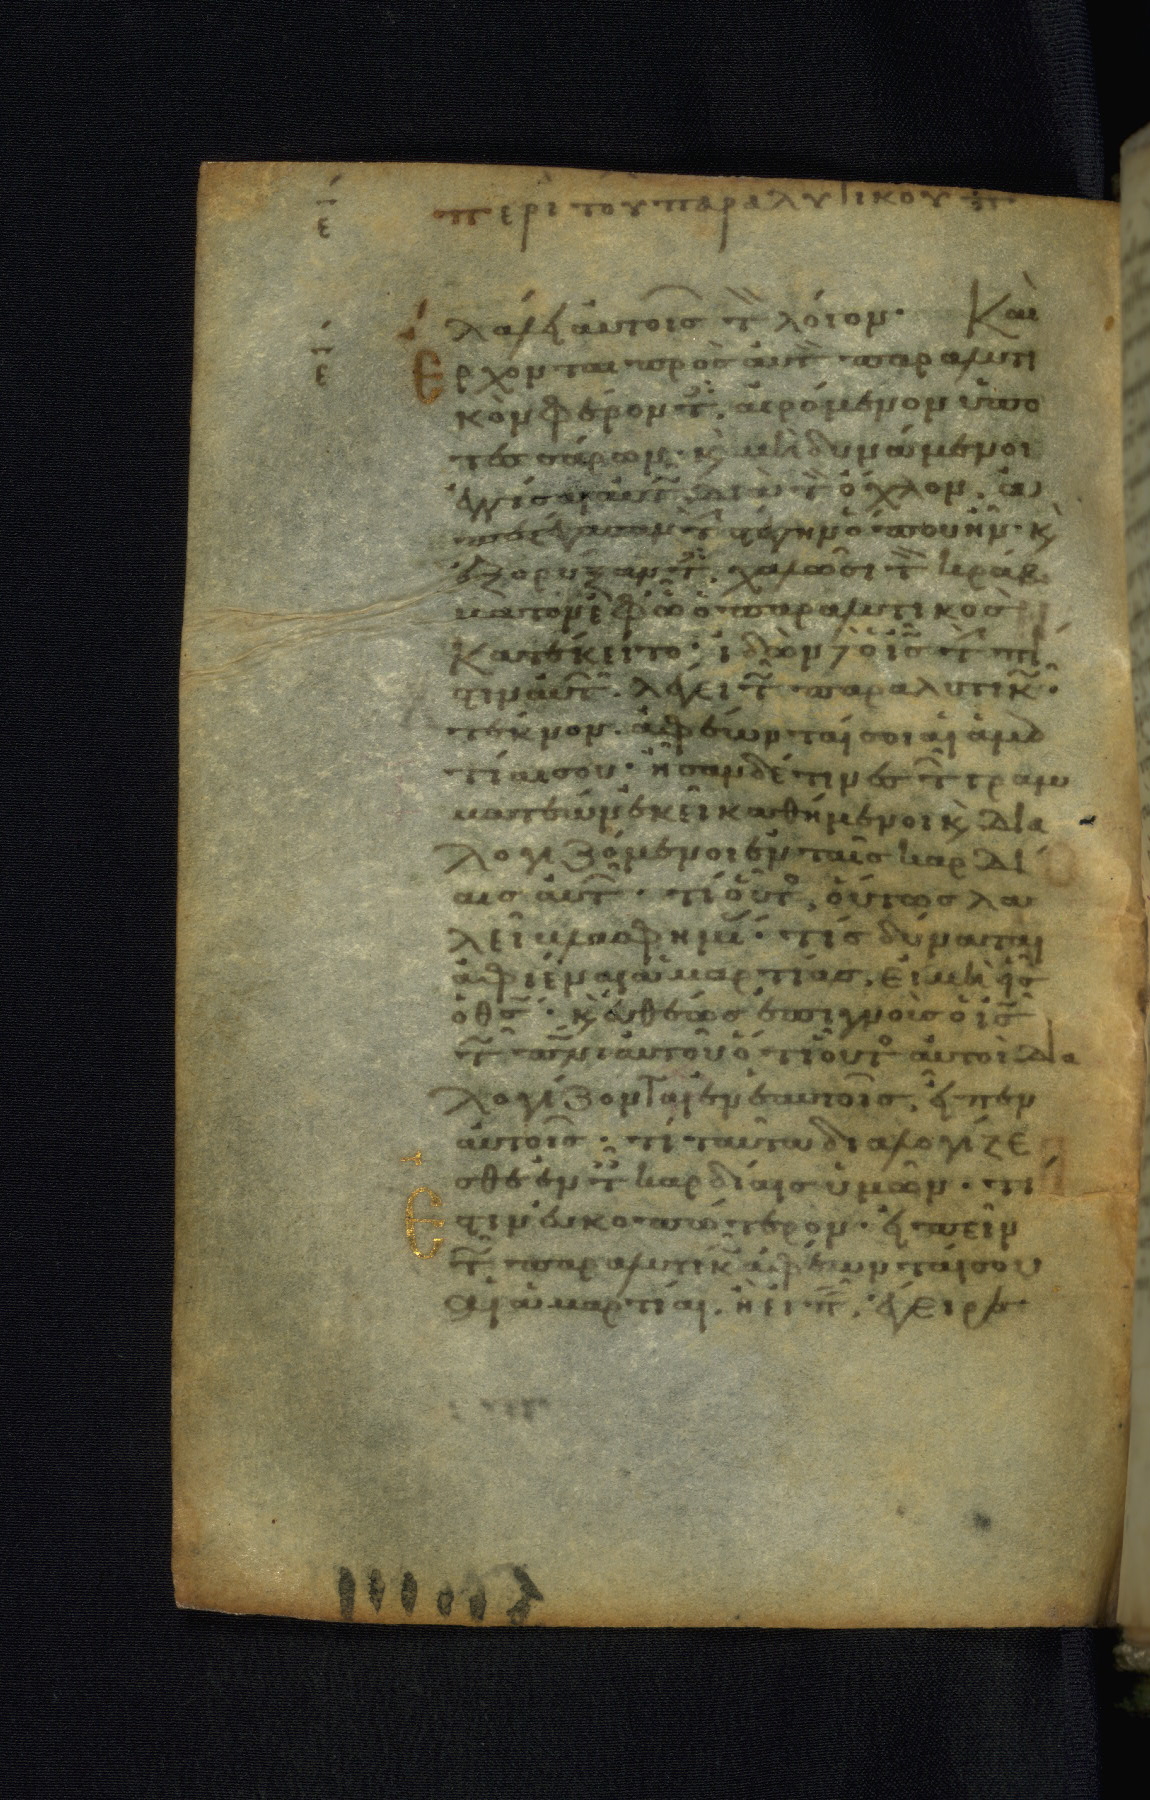 ε
περι του παραλυτικου
λαλει αυτοις τ λόγον· Και
ε
Ερχονται προς αυτ παραλυτι
κὸν φέροντ, αιρόμενον ὑπο
τεσσάρων· κ μὴ δυνάμενοι
ἐγγίσαι αυτ δια τ ὄχλον, ἀ
πεστέγασαν τ στέγην ὅπου ἦν· κ
ἐξορύξαντ, χαλῶσι τ κράβ
βατον ἐφ ω ὁ παραλυτικος
Κατέκειτο· ἰδὼν δ ὁ ις τ πί
στιν αυτ. λέγει τ παραλυτικ·
τέκνον. ἀφέωνταί σοι αἱ ἁμαρ
τίαι σου· ἦσαν δέ τινες τ γραμ
ματέων ἐκεῖ καθήμενοι κ δια
λογιζόμενοι ἐν ταῖς καρδί
αις αυτ· τί οὗτ, ούτως λα
λεῖ βλασφημί· τίς δύναται
ἀφιέναι ἁμαρτίας, εἰ μὴ εἷς
ὁ θς· κ ευθέως ἐπιγνοὺς ὁ ις
τ πνι αυτοῦ ὅτι οὕτ αυτοὶ δια
λογίζονται ἐν ἑαυτοῖς, εἶπεν
αυτοῖς· τί ταῦτα διαλογίζε
σθε ἐν τ καρδίαις ὑμῶν· τί
ἐστιν ευκοπώτερον· εἰπεῖν
τ παραλυτικ ἀφέωνταί σου
αἱ ἁμαρτίαι. ἢ εἰπ, ἔγειρε